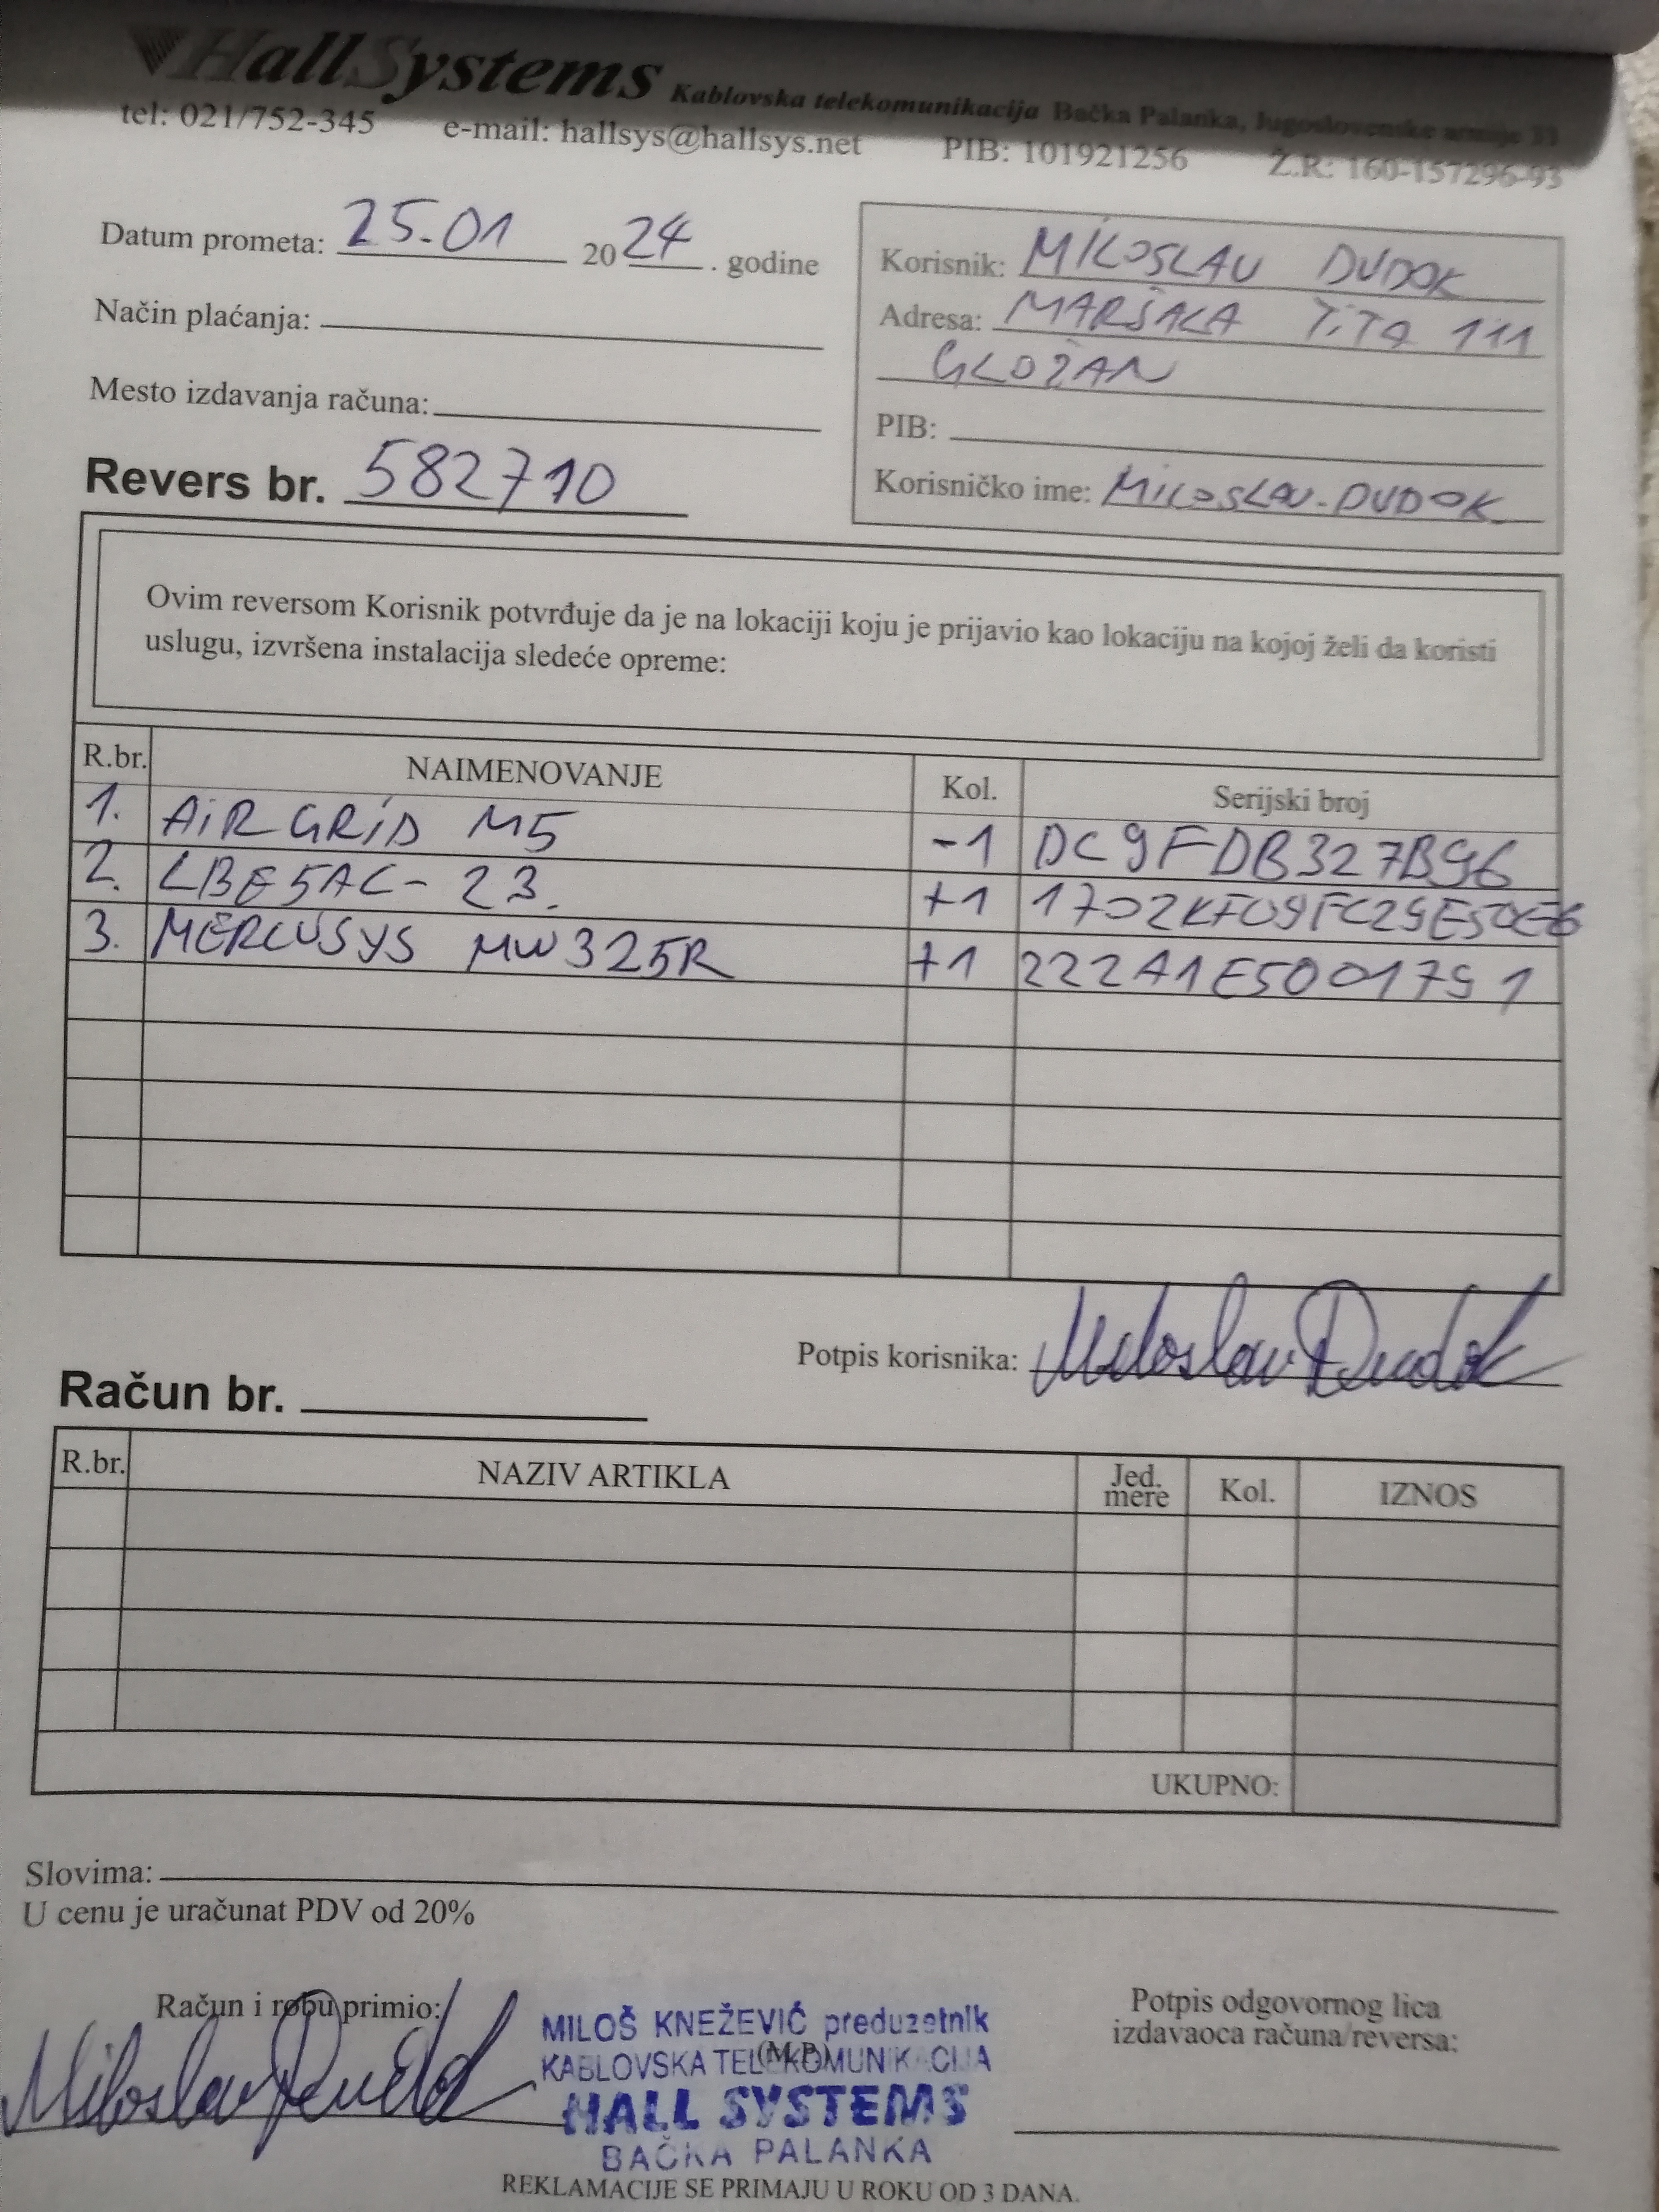 HallSystems Kablovska telekomunikacija Bačka Palanka, Jugoslovenske armije 33
tel: 021/752-345 e-mail: hallsys@hallsys.net PIB: 101921256 Ž.R: 160-157296-93
Datum prometa: 25.01 2024. godine
Način plaćanja:
Mesto izdavanja računa:
Revers br. 582710
Korisnik: MILOSLAV DUDOK
Adresa: MARŠALA TITA 111
GLOŽAN
PIB:
Korisničko ime: MILOSLAV-DUDOK
Ovim reversom Korisnik potvrđuje da je na lokaciji koju je prijavio kao lokaciju na kojoj želi da koristi
uslugu, izvršena instalacija sledeće opreme:
R.br. NAIMENOVANJE Kol. Serijski broj
1. AiR GRiD M5 -1 DC9FDB327B96
2. LBE5AC-23. +1
3. MERCUSYS MW325R +1 222A1E5001791
Potpis korisnika: Miloslav Dudok
Račun br.
R.br. NAZIV ARTIKLA Jed. mere Kol. IZNOS
UKUPNO:
Slovima:
U cenu je uračunat PDV od 20%
Račun i robu primio:
Miloslav Dudok
MILOŠ KNEŽEVIĆ preduzetnik
(M.P.)
KABLOVSKA TELEKOMUNIKACIJA
HALL SYSTEMS
BAČKA PALANKA
Potpis odgovornog lica
izdavaoca računa/reversa:
REKLAMACIJE SE PRIMAJU U ROKU OD 3 DANA.